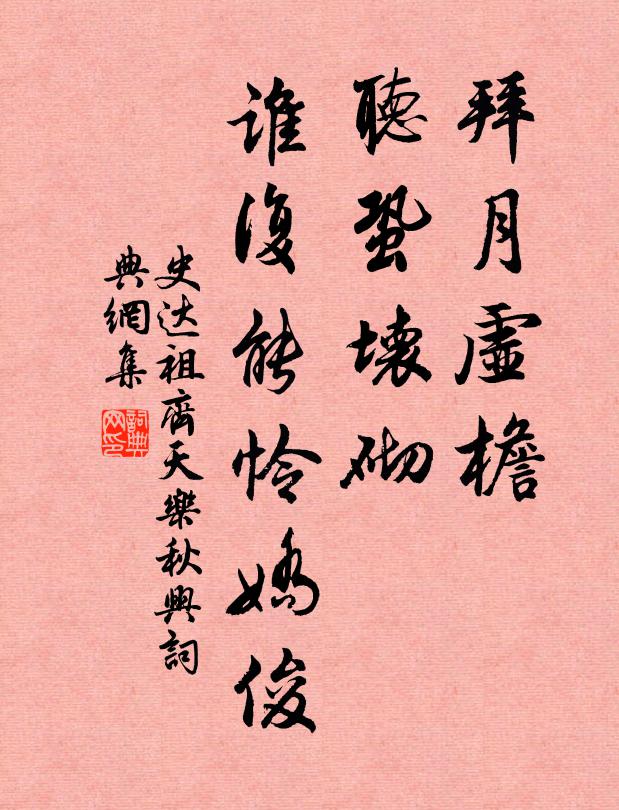 拜月虛檐
聽蛩壞砌
誰復能怜嬌俊
史达祖齊天樂秋興詞
典網集
詞典
网印